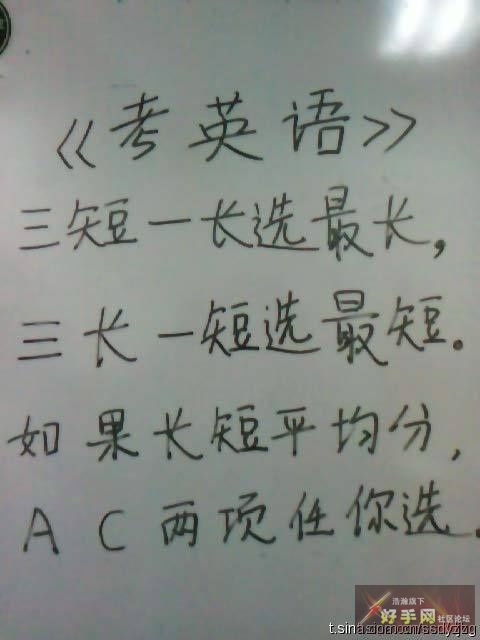 《考英语》
三短一长选最长，
三长一短选最短。
如果长短平均分，
A C 两项任你选.
浩瀚旗下
好手网社区论坛